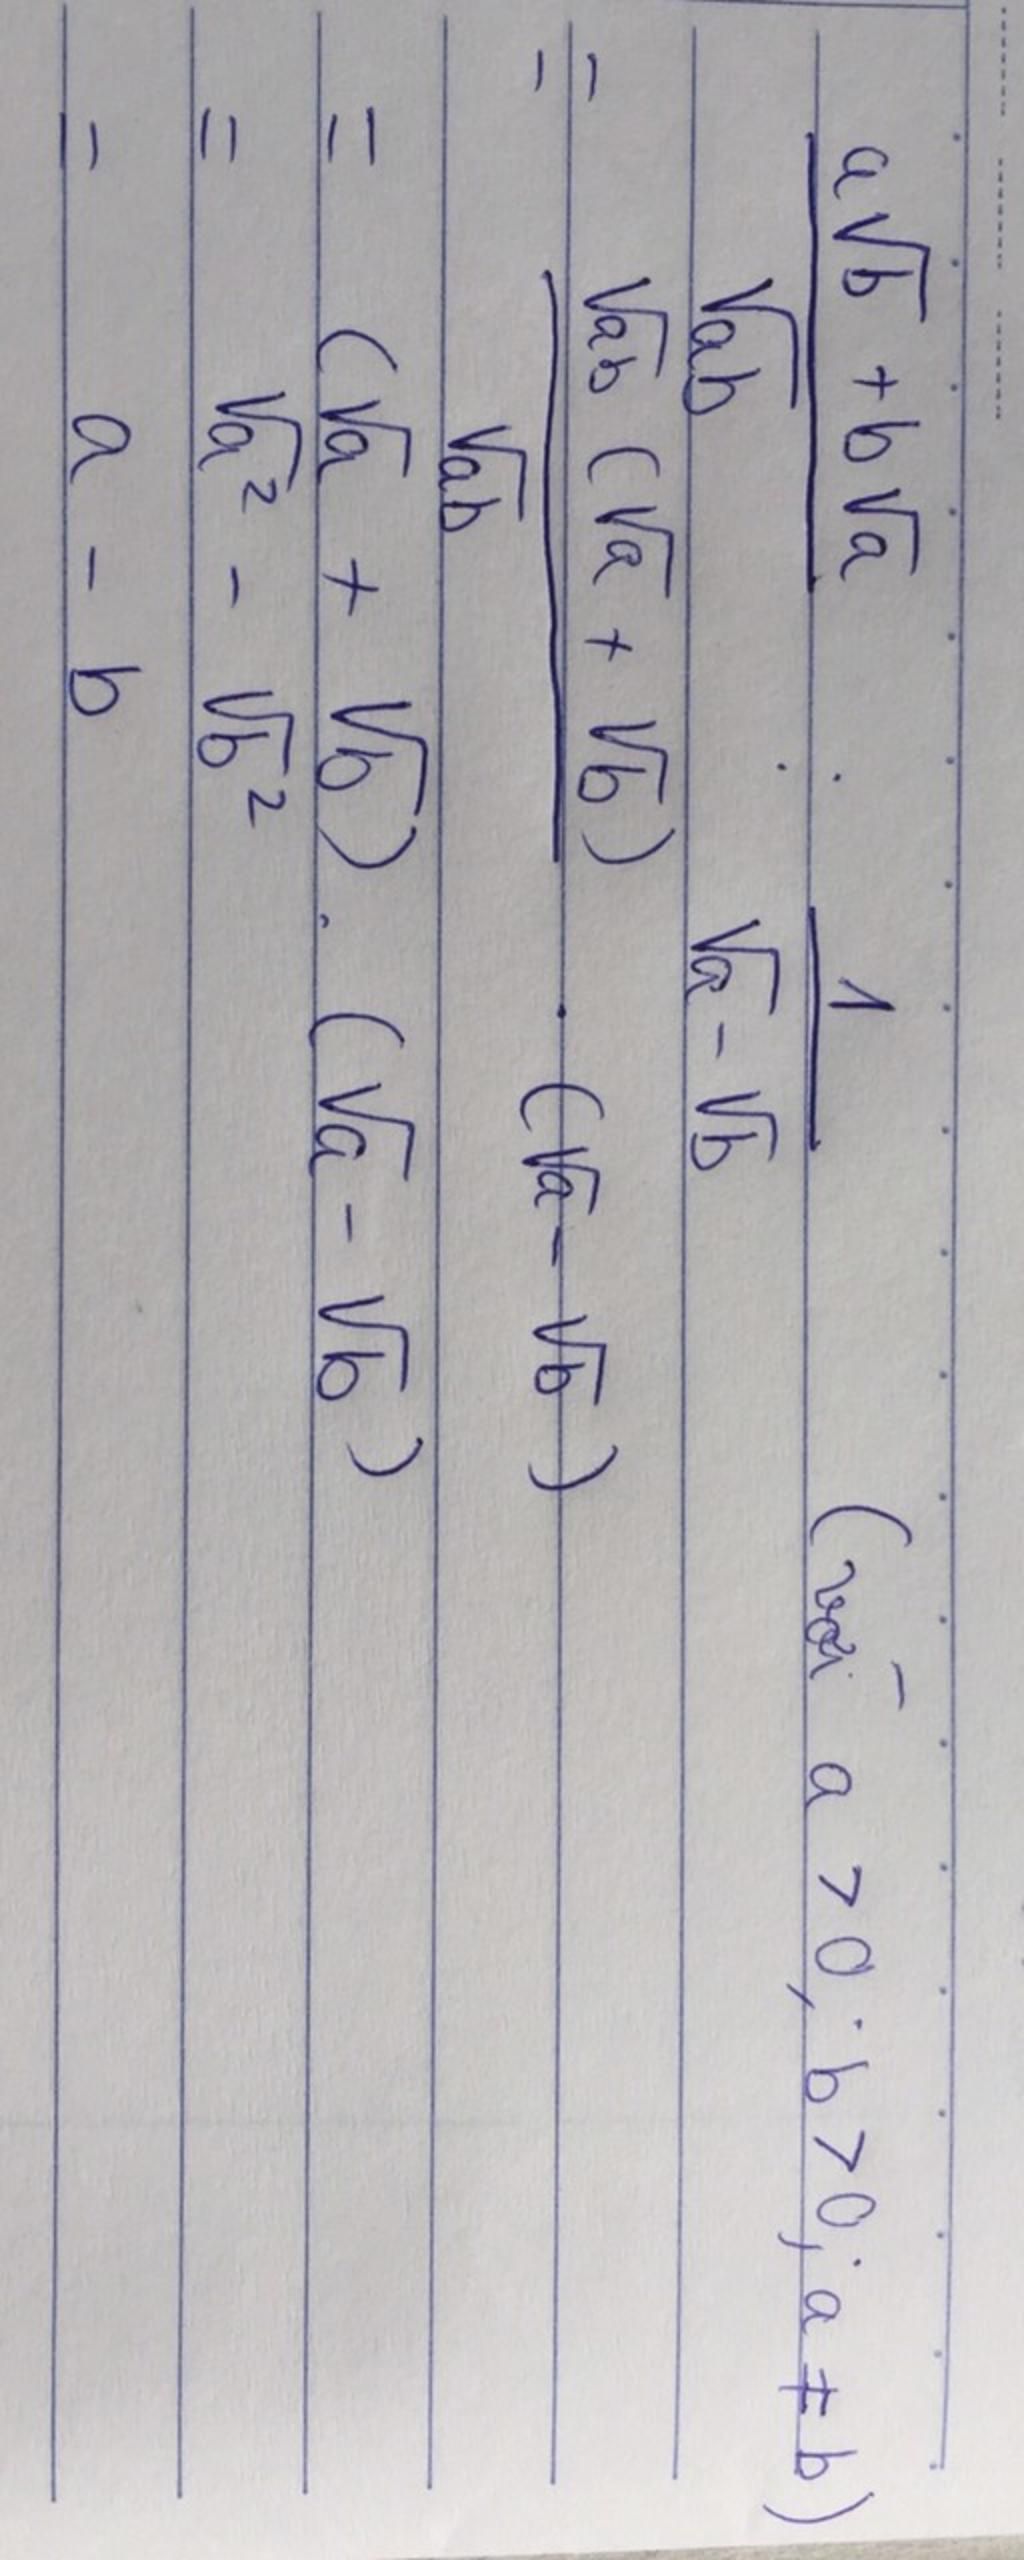 a√b + b√a / √ab : 1 / √a - √b (với a > 0; b > 0; a ≠ b)
= √ab (√a + √b) / √ab . (√a - √b)
= (√a + √b) . (√a - √b)
= √a² - √b²
= a - b